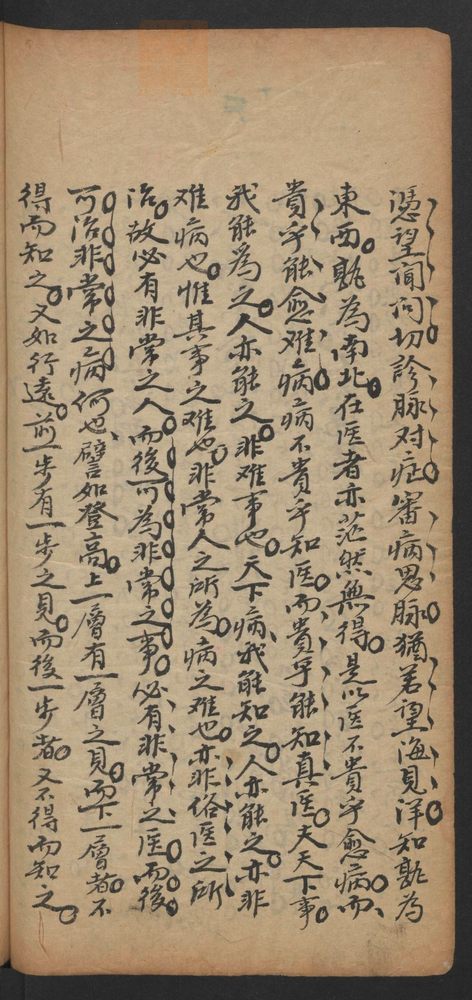 憑望聞问切診脉对症審病思脉猶若望海見洋知孰為
東西孰為南北在医者亦茫然無得是以医不貴乎愈病而
貴乎能愈难病病不貴乎知医而貴乎能知真医夫天下事
我能為之人亦能之非难事也天下病我能知之人亦能之亦非
难病也惟其事之难也非常人之所為病之难也亦非俗医之所
治故必有非常之人而後可為非常之事必有非常之医而後
可治非常之病何也譬如登高上一層有一層之見而下一層者不
得而知之又如行遠前一步有一步之見而後一步者又不得而知之